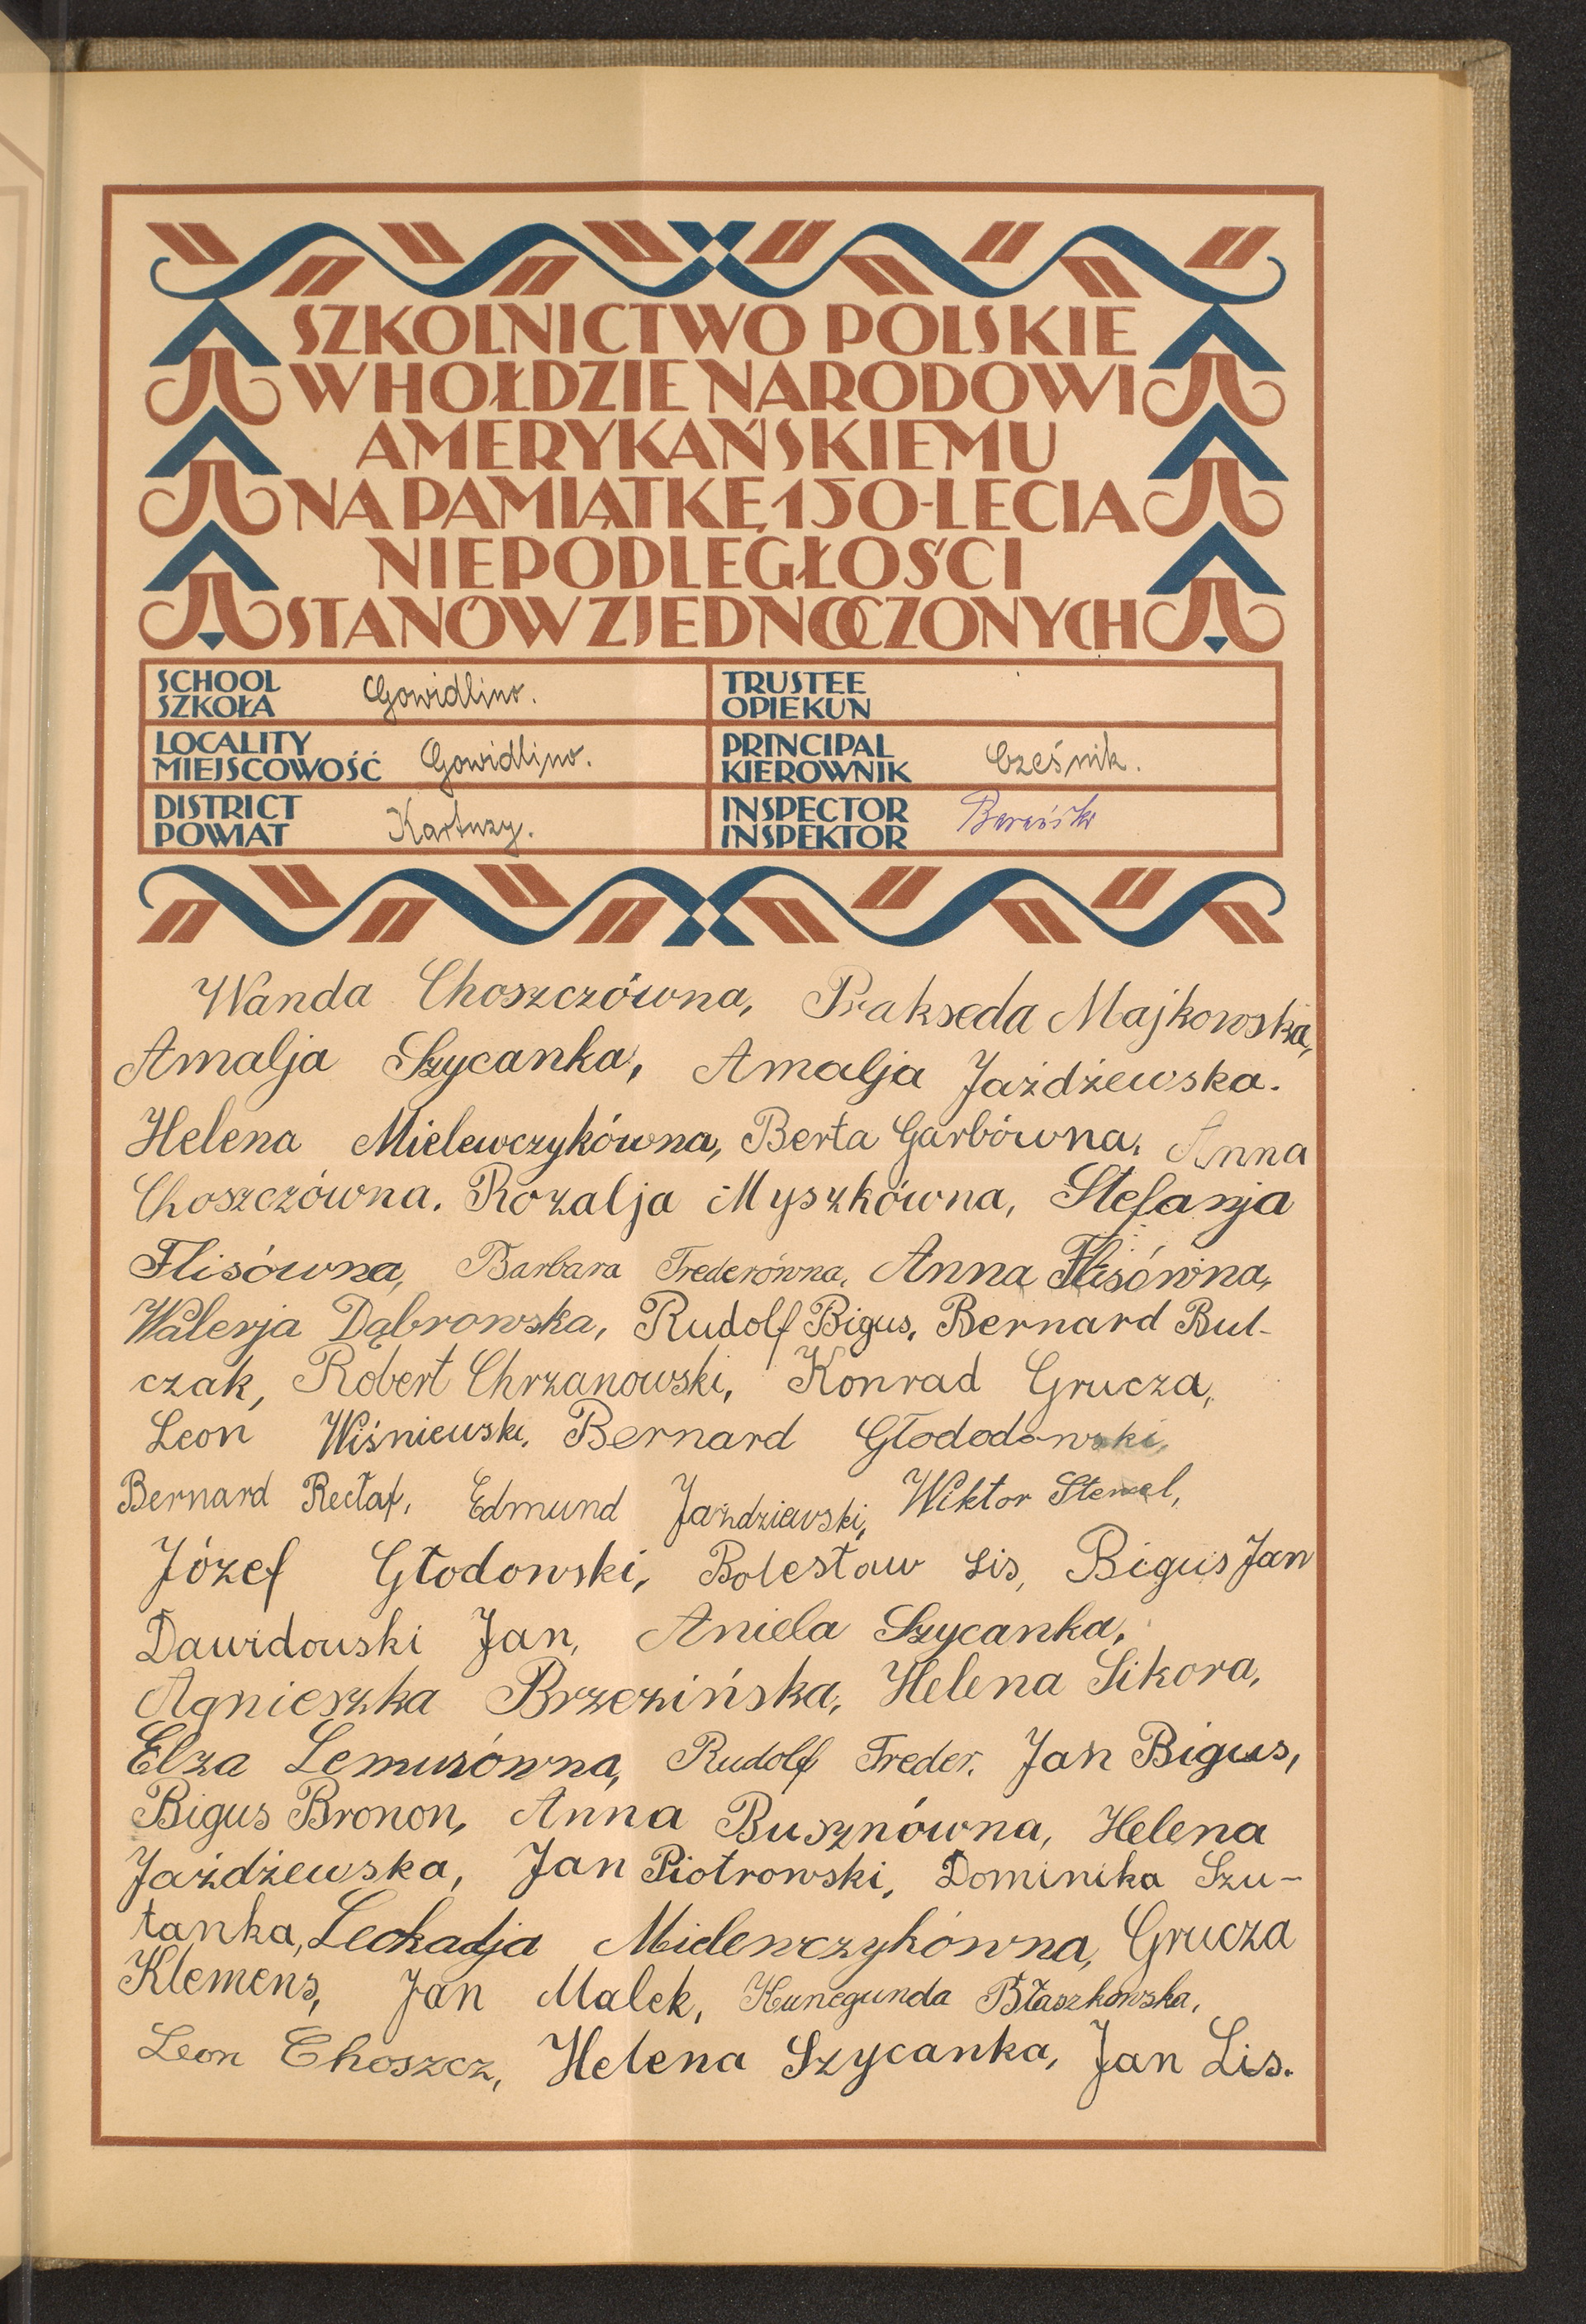 SZKOLNICTWO POLSKIE
W HOŁDZIE NARODOWI
AMERYKAŃSKIEMU
NA PAMIĄTKĘ 150-LECIA
NIEPODLEGŁOŚCI
STANÓW ZJEDNOCZONYCH
SCHOOL
SZKOŁA Gowidlino.
TRUSTEE
OPIEKUN
LOCALITY
MIEJSCOWOŚĆ Gowidlino.
PRINCIPAL
KIEROWNIK Cześnik.
DISTRICT
POWIAT Kartuzy.
INSPECTOR
INSPEKTOR
Wanda Choszczówna, Prakseda Majkowska,
Amalja Szycanka, Amalja Jażdżewska.
Helena Mielewczykówna, Berta Garbówna, Anna
Choszczówna. Rozalja Myszkówna, Stefanja
Flisówna, Barbara Trederówna, Anna Flisówna,
Walerja Dąbrowska, Rudolf Bigus, Bernard Bul-
czak, Robert Chrzanowski, Konrad Grucza,
Leon Wiśniewski, Bernard Głododowski,
Bernard Rectaf, Edmund Jażdziewski, Wiktor Stencel,
Józef Głodowski, Bolesław Lis, Bigus Jan
Dawidowski Jan, Aniela Szycanka,
Agnieszka Brzezińska, Helena Sikora,
Elza Lemusówna, Rudolf Treder, Jan Bigus,
Bigus Bronon, Anna Busznówna, Helena
Jażdżewska, Jan Piotrowski, Dominika Szu-
tanka, Leokadja Mielewczykówna, Grucza
Klemens, Jan Malek, Kunegunda Błaszkowska,
Leon Choszcz, Helena Szycanka, Jan Lis.